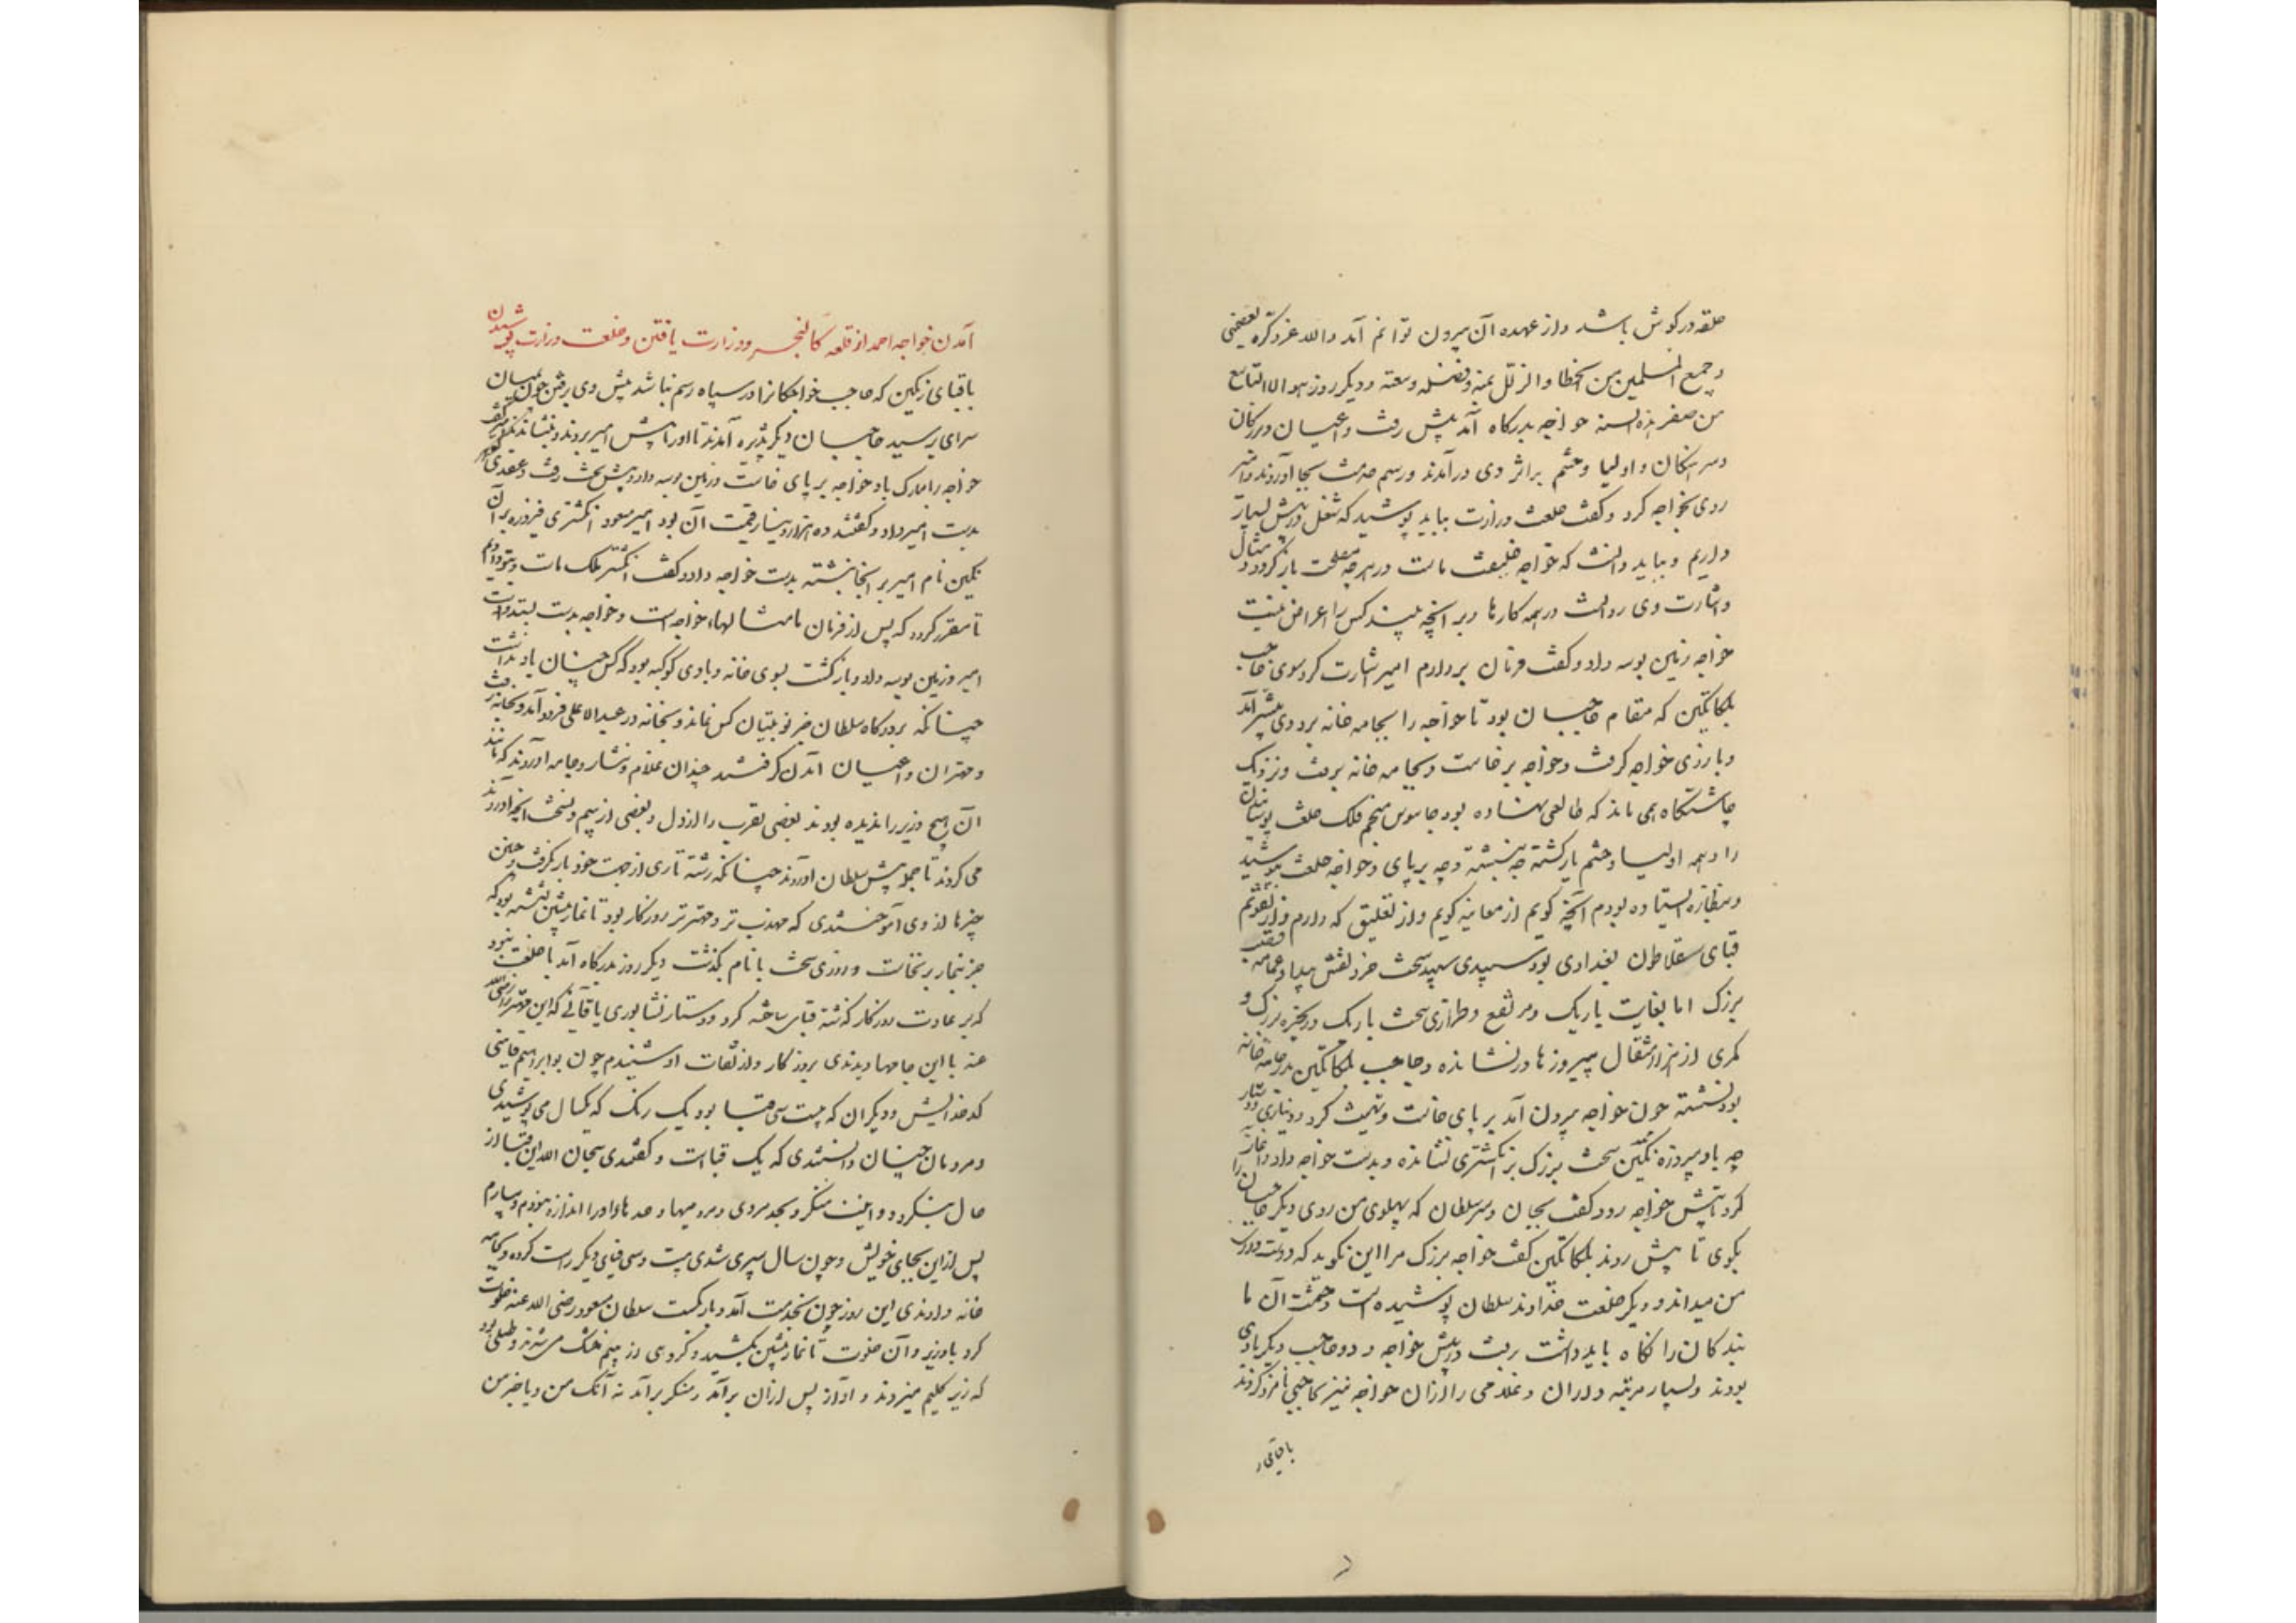 حلقه در گوش باشد و از عهده آن بیرون توانم آمد والله عز ذکره یعصمنی
و جمیع المسلمین من الخطا و الزلل بمنه و فضله و سعته و دیگر روز هو الاالتاسع
من صفر هذه السنه خواجه بدرگاه آمد پیش رفت و اعیان و بزرگان
و سرهنگان و اولیا و حشم بر اثر وی درآمدند و رسم خدمت بجا آوردند و امیر
روی بخواجه کرد و گفت خلعت وزارت بباید پوشید که شغل در پیش بسیار
داریم و بباید دانست که خواجه خلیفت ماست در هرچه بمصلحت بازگردد و مثال
و اشارت وی روانست در همه کارها و بر آنچه بیند کس را اعتراض نیست
خواجه زمین بوسه داد و گفت فرمان بردارم امیر اشارت کرد سوی حاجب
بلکاتگین که مقام حاجبان بود تا خواجه را بجامه خانه برد وی پیشتر آمد
و بازوی خواجه گرفت و خواجه برخاست و بجامه خانه رفت و نزدیک
چاشتگاه همی ماند که طالعی نهاده بود جاسوس منجم فلک خلعت پوشیدن
را و همه اولیا و حشم بازگشته چه نشسته و چه بر پای و خواجه خلعت بپوشید
و بنظاره ایستاده بودم آنچه گویم از معاینه گویم و از تعلیق که دارم و از تقویم
قبای سقلاطون بغدادی بود سپیدی سپید سخت خرد نقش پیدا و عمامه قصب
بزرگ اما بغایت باریک و مرتفع و طرازی سخت باریک و زنجیره بزرگ و
کمری از هزار مثقال پیروزها درنشانده و حاجب بلکاتگین بدر جامه خانه
بود نشسته چون خواجه بیرون آمد بر پای خاست و تهنیت کرد و دیناری و دستار
چه با دو پیروزه نگین سخت بزرگ بر انگشتری نشانده و بدست خواجه داد و آغاز
کرد تا پیش خواجه رود گفت بجان و سر سلطان که پهلوی من روی دیگر حاجبان را
بگوی تا پیش روند بلکاتگین گفت خواجه بزرگ مرا این نگوید که دوستداری
من میداند و دیگر خلعت خداوند سلطان پوشیده است و حشمت آن ما
بندگان را نگاه باید داشت برفت در پیش خواجه و دو حاجب دیگر با وی
بودند و بسیار مرتبه داران و غلامی را از آن خواجه نیز بحاجبی نامزد کردند
با قبای
آمدن خواجه احمد از قلعه کالنجر و وزارت یافتن و خلعت وزارت پوشیدن
با قبای رنگین که حاجب خواجگانرا در سیاه رسم نباشد پیش وی برفتن چون بمیان
سرای برسید حاجبان دیگر پذیره آمدند تا او را پیش امیر بردند و بنشاندند امیر گفت
خواجه را مبارک باد خواجه بر پای خاست و زمین بوسه داد و پیش تخت رفت و عقدی گوهر
بدست امیر داد و گفتند ده هزار دینار قیمت آن بود امیر مسعود انگشتری فیروزه بر آن
نگین نام امیر بر آنجا نبشته بدست خواجه داد و گفت انگشتر ملک ماست و بتو دادیم
تا مقرر گردد که پس از فرمان ما مثالهاء خواجه است و خواجه بدست بستد و دست
امیر و زمین بوسه داد و بازگشت بسوی خانه و با وی کوکبه بود که کس چنان یاد نداشت
چنانکه بر درگاه سلطان جز نوبتیان کس نماند و بخانه در عبدالاعلی فرود آمد و بخانه رفت
و مهتران و اعیان آمدن گرفتند چندان غلام و نثار و جامه آوردند که مانند
آن هیچ وزیر را ندیده بودند بعضی تقرب را از دل و بعضی از بیم و نسخت آنچه آوردند
می کردند تا جمله پیش سلطان آوردند چنانکه رشته تاری از جهت خود بازنگرفت و چنین
چیزها از وی آموختندی که مهذب تر و مهتر تر روزگار بود تا نماز پیشین نشسته بود که
جز بنماز برنخاست و روزی سخت با نام بگذشت دیگر روز بدرگاه آمد با خلعت نبود
که بر عادت روزگار گذشته قبای ساخته کرد و دستار نشابوری یا قاینی که این مهتر را رضی الله
عنه با این جامها دیدندی بروزگار و از ثقات او شنیدم چون بوابراهیم قاینی
کدخدایش و دیگران که بیست سی قبا بود یک رنگ که یکسال می پوشیدی
و مردمان چنان دانستندی که یک قباست و گفتندی سبحان الله این قبا از
حال بنگردد و اینت منکر و بجد مردی و مردیها و جدها و او را اندازه نبود و بیارم
پس از این بجای خویش و چون سال سپری شدی بیست و سی قبای دیگر راست کرده و بجامه
خانه دادندی این روز چون بخدمت آمد و بارگسست سلطان مسعود رضی الله عنه خلوت
کرد با وزیر و آن خلوت تا نماز پیشین بکشید و گروهی از بیم خشک می شدند و طبلی بود
که زیر گلیم میزدند و آواز پس از آن برآمد و منکر برآمد نه آنکه من و یا جز من